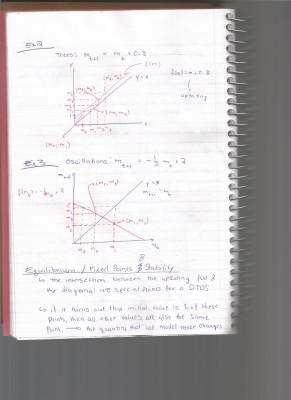 Ex.2
Trees: m_{t+1} = m_t + 0.8
f(m)
y=x
f(m)=m+0.8
updating
Ex.3 Oscillations: m_{t+1} = -1/2 m_t + 2
m_{t+1}
y=x
m_{t+1} = m_t
m_t
Equilibrium / Fixed Points & Stability
the intersection between the updating fcn &
the diagonal are special points for a DTDS
if it turns out that initial value is 1 of these
points, then all other values are also the same
point. → the quantity that we model never changes